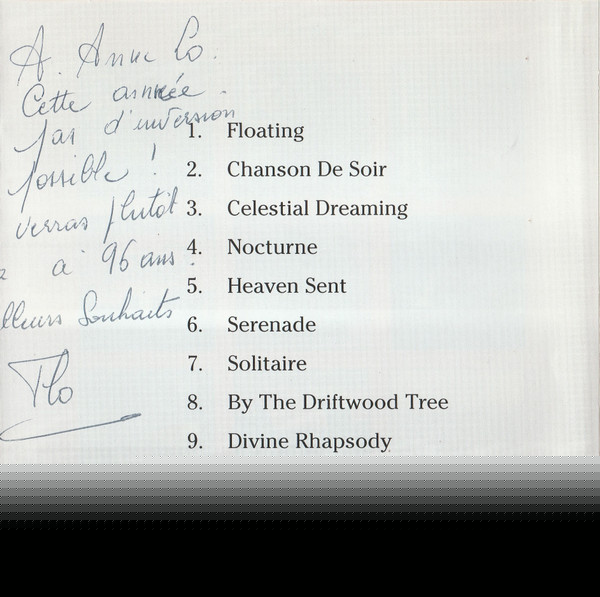 A. Anne Lo.
Cette année
pas d'inversion
possible !
verras plutôt
à 96 ans.
lleurs Souhaits
Flo
1. Floating
2. Chanson De Soir
3. Celestial Dreaming
4. Nocturne
5. Heaven Sent
6. Serenade
7. Solitaire
8. By The Driftwood Tree
9. Divine Rhapsody